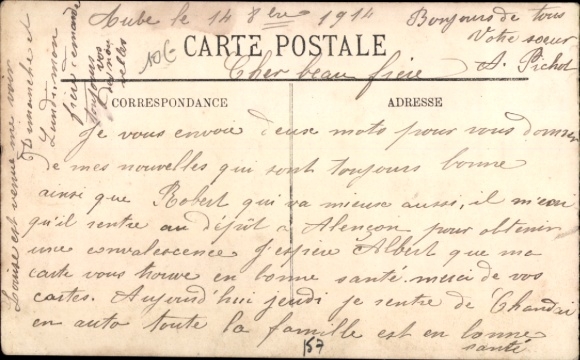 Aube le 14 8bre 1914
CARTE POSTALE
Cher beau frère
CORRESPONDANCE
ADRESSE
Je vous envoie deux mots pour vous donner
de mes nouvelles qui sont toujours bonne
ainsi que Robert qui va mieux aussi, il m'écri
qu'il rentre au dépôt à Alençon pour obtenir
une convalescence J'espère Albert que ma
carte vous trouve en bonne santé. merci de vos
cartes. Aujourd'hui jeudi je rentre de Chandai
en auto toute la famille est en bonne
santé
Louise est venue me voir
Dimanche et
Lundi. mon
frère demande
toujours
vos
nouvelles
Bonjours de tous
Votre sœur
A. Pichot
157